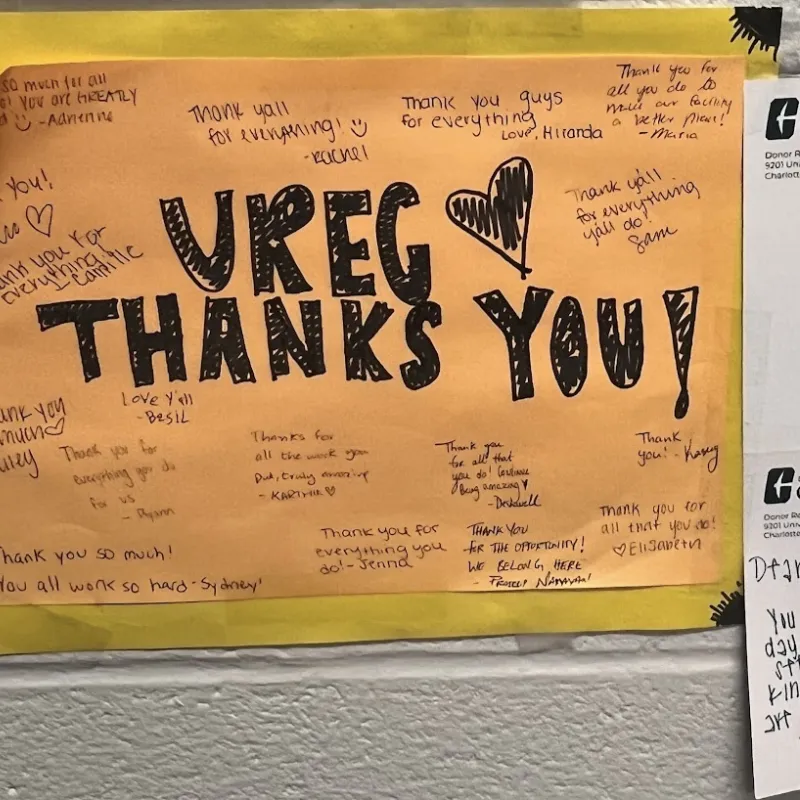 so much for all
! You are GREATLY
- Adrienne
Thank yall
for everything!
- Rachel
Thank you guys
for everything
Love, Miranda
Thank you for
all you do to
make our facility
a better place!
- Maria
you!
Thank you for
everything!
- Camille
UREC
THANKS YOU!
Thank y'all
for everything
y'all do!
Sam
Thank you
much
Love Y'all
- BESIL
Thank you for
everything you do
for us
- Ryann
Thanks for
all the work you
put, truly amazing
Thank you
for all that
you do! Continue
Being amazing
Thank
you! - Kasey
Thank you so much!
You all work so hard - Sydney!
Thank you for
everything you
do! - Jenna
THANK YOU
FOR THE OPPORTUNITY!
WE BELONG HERE
Thank you for
all that you do!
Elisabeth
Donor Re
9201 Uni
Charlotte
Donor Re
9201 Univ
Charlotte
Dear
You
day
kin